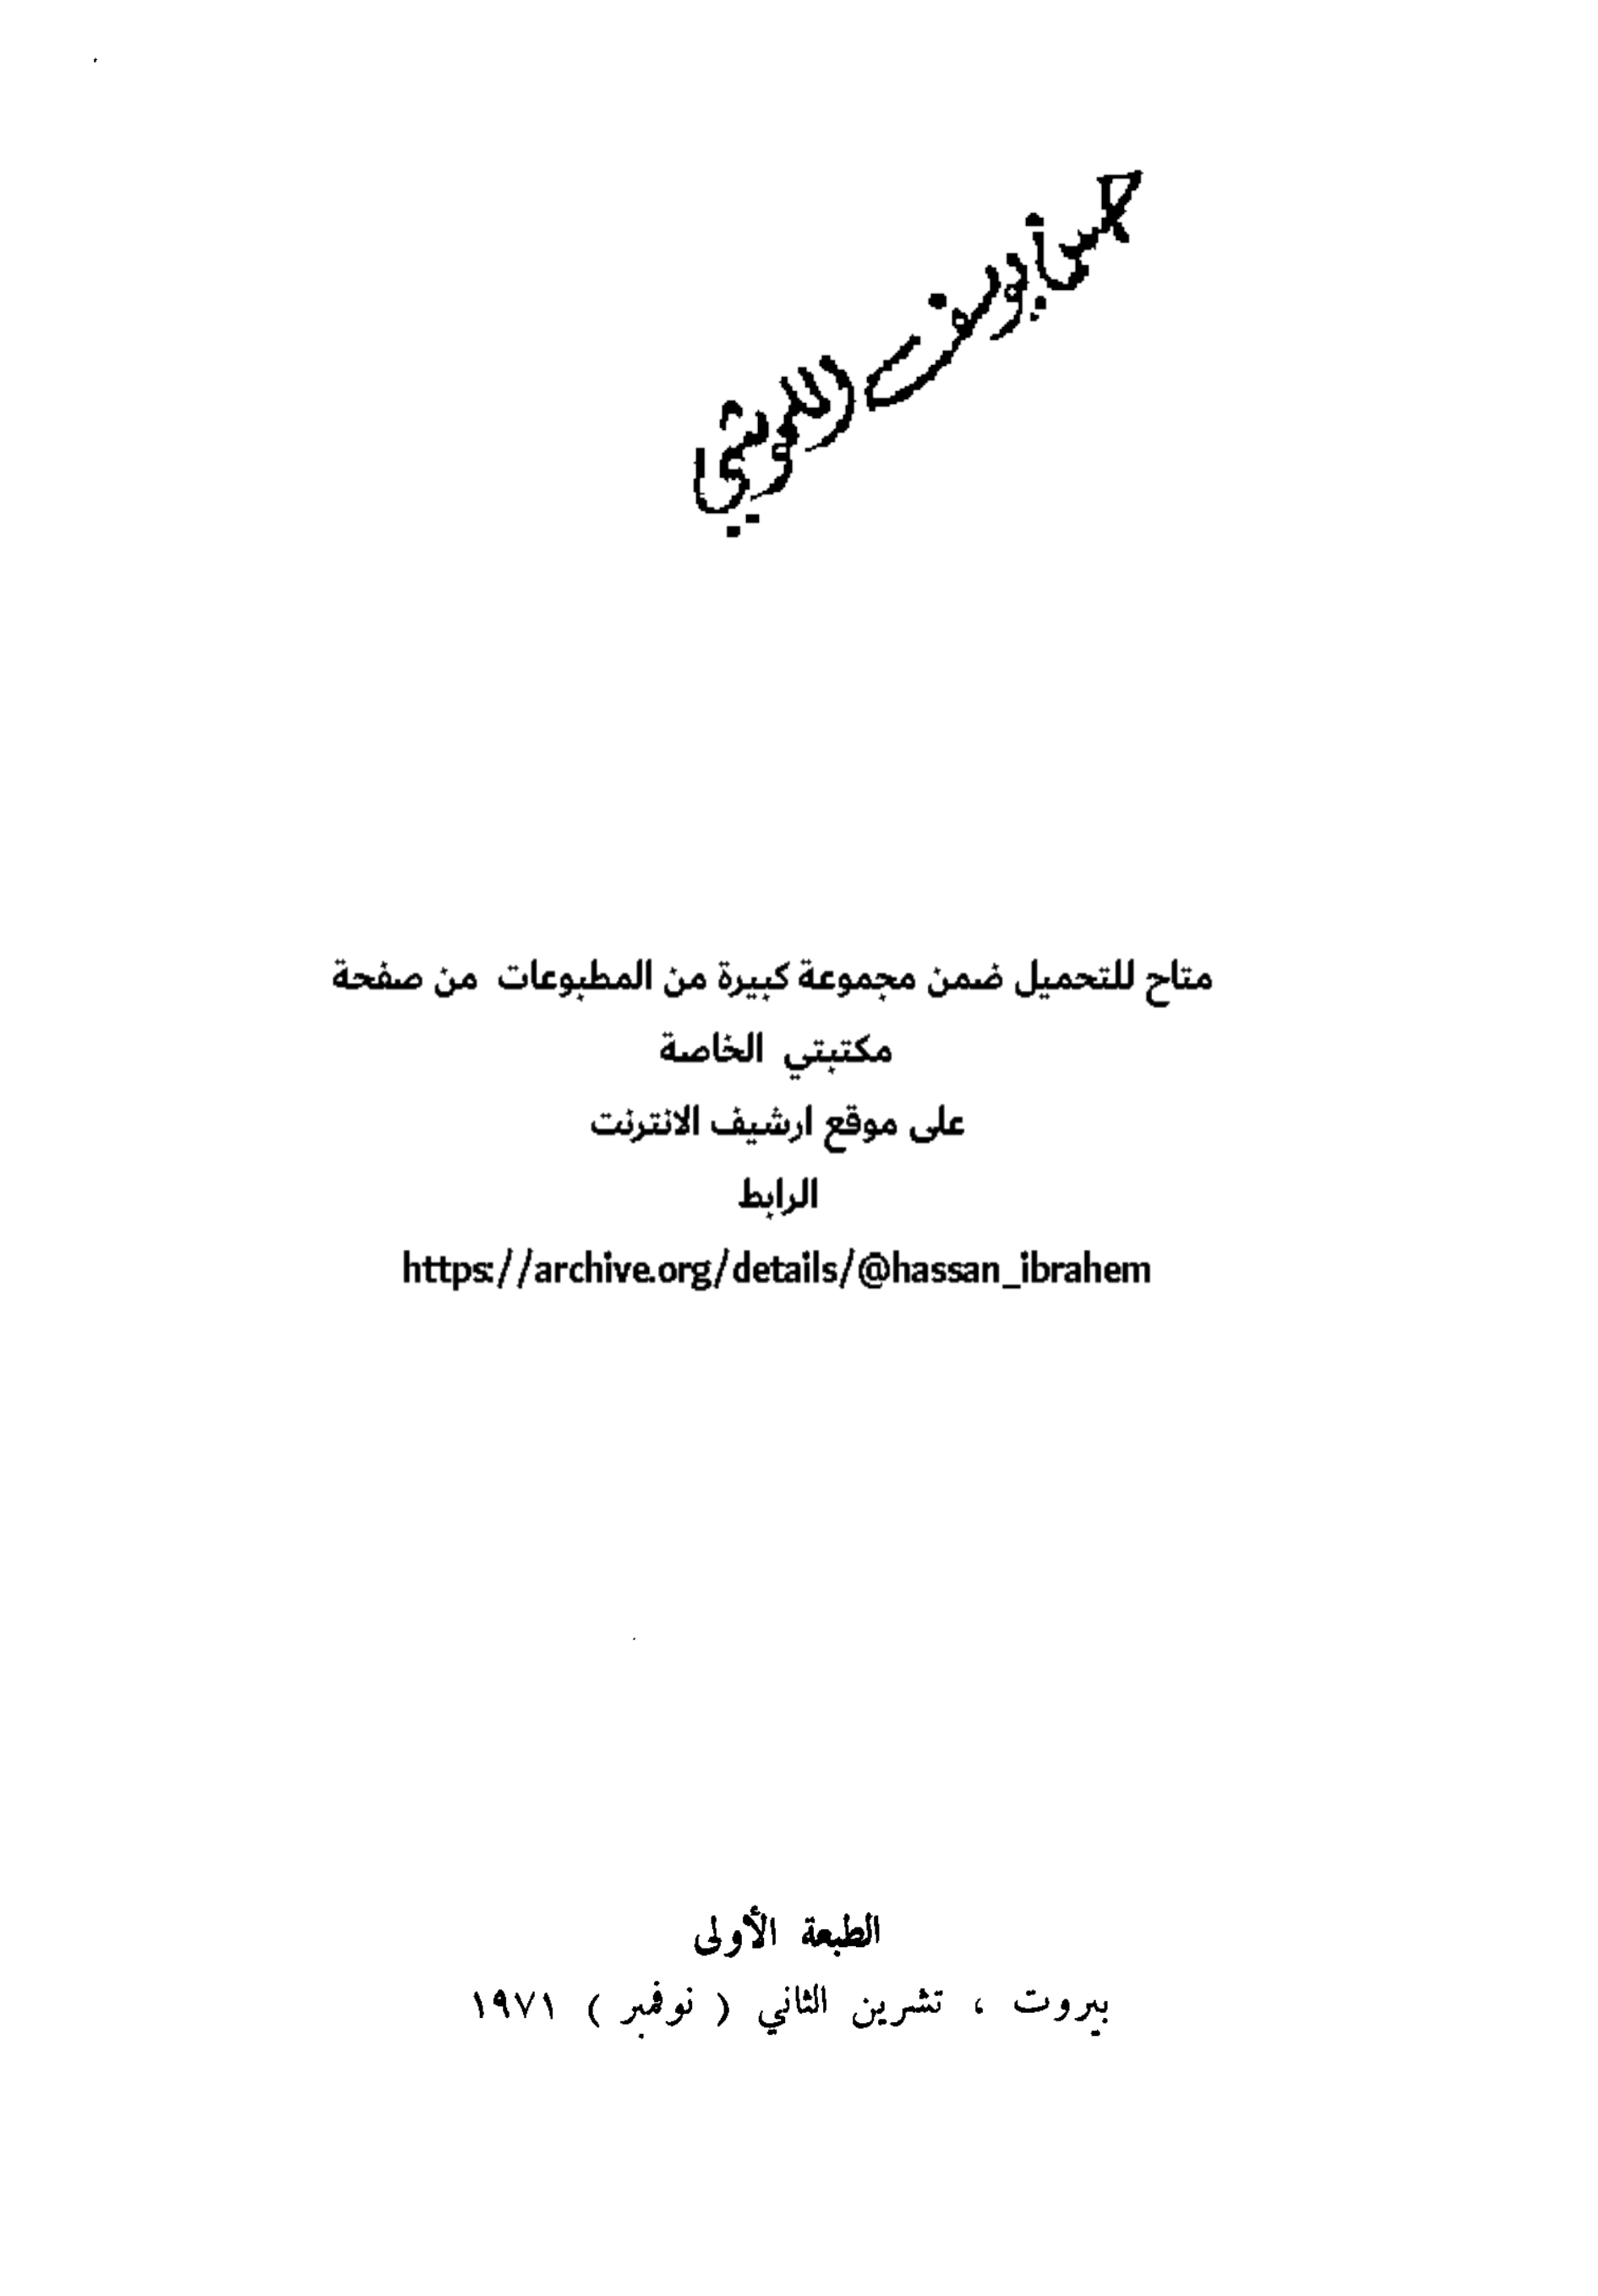 متاح للتحميل ضمن مجموعة كبيرة من المطبوعات من صفحة
مكتبتي الخاصة
على موقع ارشيف الانترنت
الرابط
https://archive.org/details/@hassan_ibrahem
الطبعة الأولى
بيروت ، تشرين الثاني ( نوفمبر ) ١٩٧١